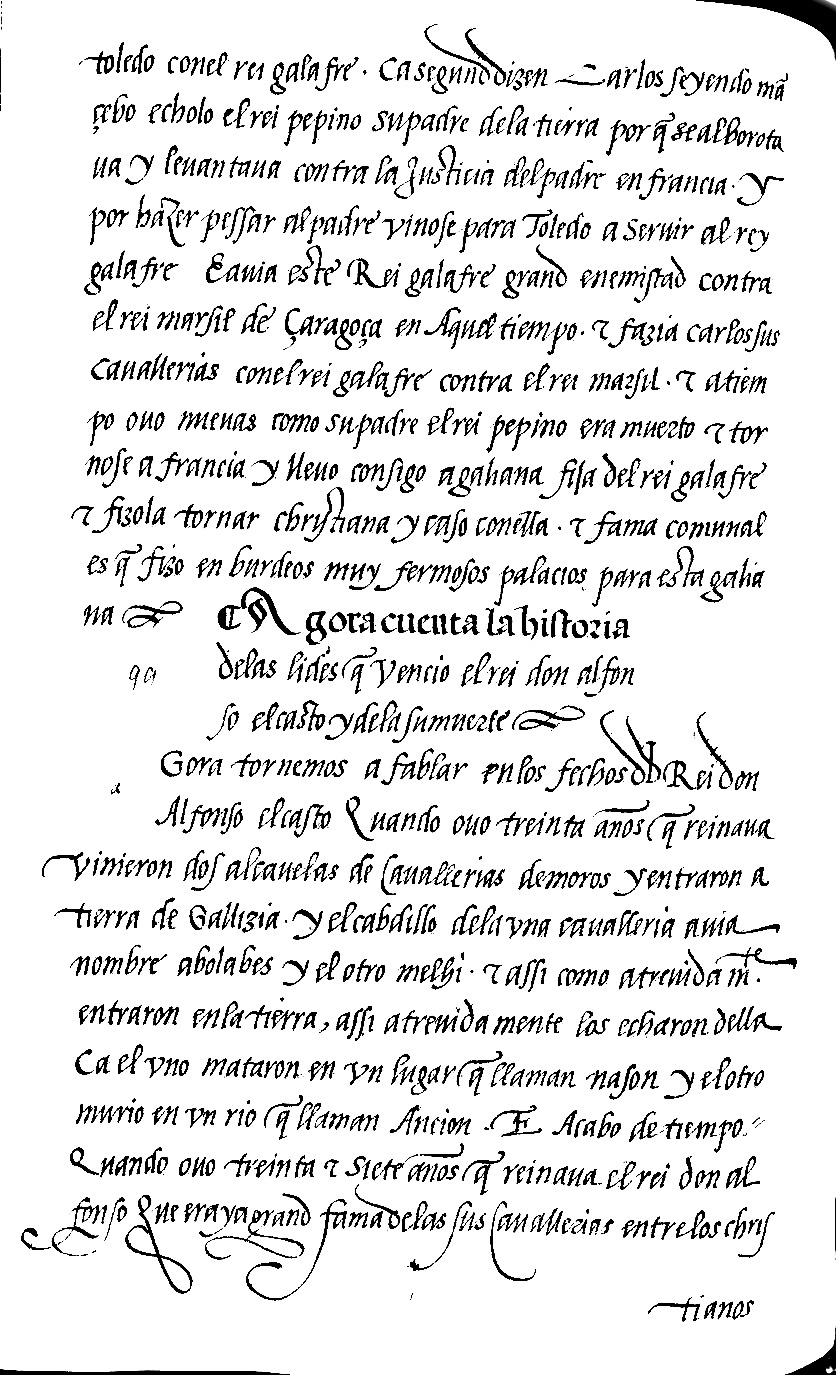 toledo conel rei galafre . Ca segund dizen Carlos seyendo mã
çebo echolo el rei pepino su padre dela tierra por q̃ se alborota
ua y leuantaua contra la Justicia del padre en francia . Y
por hazer pessar al padre vinose para Toledo a seruir al rey
galafre Eauia este Rei galafre grand enemistad contra
el rei marsil de Çaragoça en Aquel tiempo . ⁊ fazia carlos sus
cauallerias conel rei galafre contra el rei marsil . ⁊ a tiem
po ouo nueuas como su padre el rei pepino era muerto ⁊ tor
nose a francia y lleuo consigo a galiana fija del rei galafre
⁊ fizola tornar christiana y caso conella . ⁊ fama comunal
es q̃ fizo en burdeos muy fermosos palacios para esta galia
na
¶ Agora cuenta la historia
delas lides q̃ vencio el rei don alfon
so el casto y dela su muerte
Gora tornemos a fablar enlos fechos del Rei don
a
Alfonso el casto Quando ouo treinta años q̃ reinaua
vinieron dos alcauelas de Cauallerias de moros y entraron a
tierra de Gallizia . y el cabdillo dela vna caualleria auia
nombre abolabes y el otro melhi . ⁊ assi como atreuida mte.
entraron enla tierra, assi atreuida mente los echaron della
Ca el vno mataron en vn lugar q̃ llaman nason y el otro
murio en vn rio q̃ llaman Ancion . E Acabo de tiempo
Quando ouo treinta ⁊ siete años q̃ reinaua el rei don al
fonso Que era ya grand fama delas sus Cauallerias entre los chris
tianos